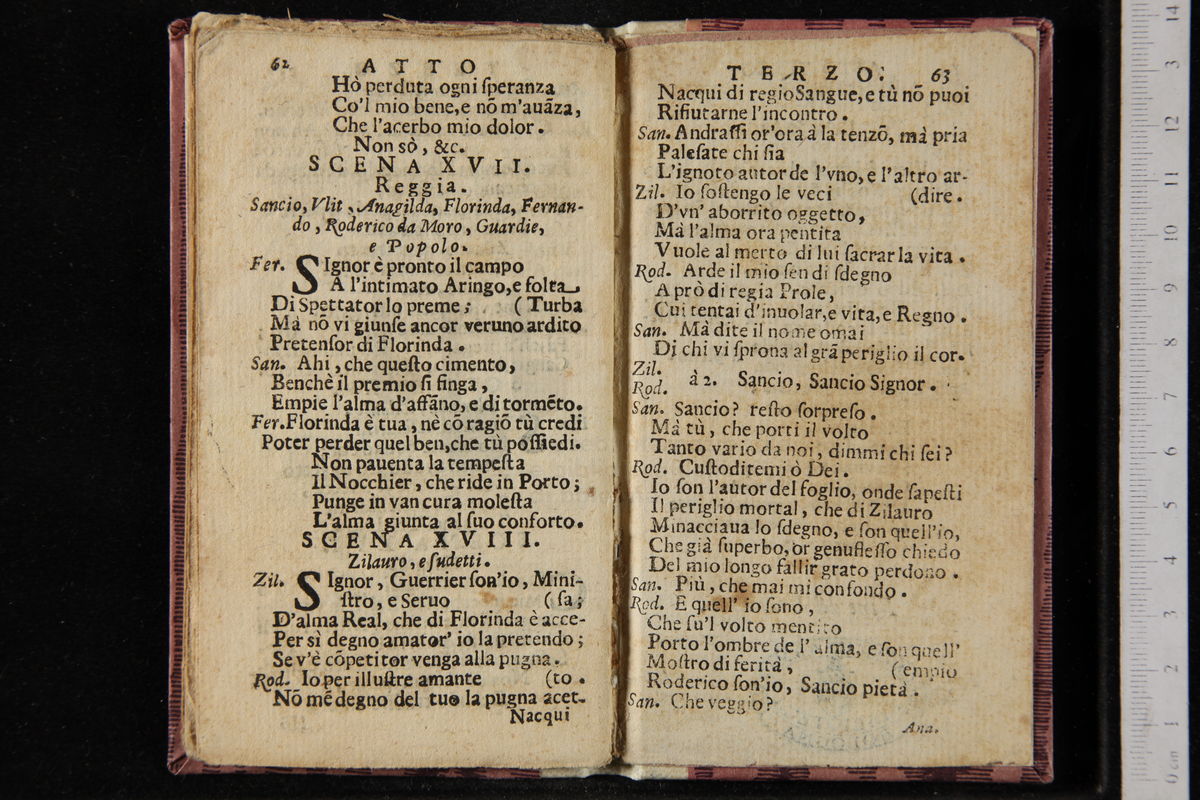 62 ATTO
Hò perduta ogni ſperanza
Co'l mio bene, e nõ m'auãza,
Che l'acerbo mio dolor.
Non sò, &c.
SCENA XVII.
Reggia.
Sancio, Vlit, Anagilda, Florinda, Fernan-
do, Roderico da Moro, Guardie,
e Popolo.
Fer. SIgnor è pronto il campo
A l'intimato Aringo, e folta
Di Spettator lo preme; (Turba
Mà nõ vi giunſe ancor veruno ardito
Pretenſor di Florinda.
San. Ahi, che queſto cimento,
Benchè il premio ſi finga,
Empie l'alma d'affãno, e di tormẽto.
Fer. Florinda è tua, nè cõ ragiõ tù credi
Poter perder quel ben, che tù poſſiedi.
Non pauenta la tempeſta
Il Nocchier, che ride in Porto;
Punge in van cura moleſta
L'alma giunta al ſuo conforto.
SCENA XVIII.
Zilauro, e ſudetti.
Zil. SIgnor, Guerrier ſon'io, Mini-
ſtro, e Seruo (ſa;
D'alma Real, che di Florinda è acce-
Per sì degno amator' io la pretendo;
Se v'è cõpetitor venga alla pugna.
Rod. Io per illuſtre amante (to.
Nõ mẽ degno del tuo la pugna acet-
Nacqui
TERZO. 63
Nacqui di regio Sangue, e tù nõ puoi
Rifiutarne l'incontro.
San. Andraſſi or'ora à la tenzõ, mà pria
Paleſate chi ſia
L'ignoto autor de l'vno, e l'altro ar-
Zil. Io ſoſtengo le veci (dire.
D'vn' aborrito oggetto,
Mà l'alma ora pentita
Vuole al merto di lui ſacrar la vita.
Rod. Arde il mio ſen di ſdegno
A prò di regia Prole,
Cui tentai d'inuolar, e vita, e Regno.
San. Mà dite il nome omai
Di chi vi ſprona al grã periglio il cor.
Zil.
Rod. à 2. Sancio, Sancio Signor.
San. Sancio? reſto ſorpreſo.
Mà tù, che porti il volto
Tanto vario da noi, dimmi chi ſei?
Rod. Cuſtoditemi ò Dei.
Io ſon l'autor del foglio, onde ſapeſti
Il periglio mortal, che di Zilauro
Minacciaua lo ſdegno, e ſon quell'io,
Che già ſuperbo, or genufleſſo chiedo
Del mio longo fallir grato perdono.
San. Più, che mai mi confondo.
Rod. E quell' io ſono,
Che ſu'l volto mentito
Porto l'ombre de l'alma, e ſon quell'
Moſtro di ferità, (empio
Roderico ſon'io, Sancio pietà.
San. Che veggio?
Ana.